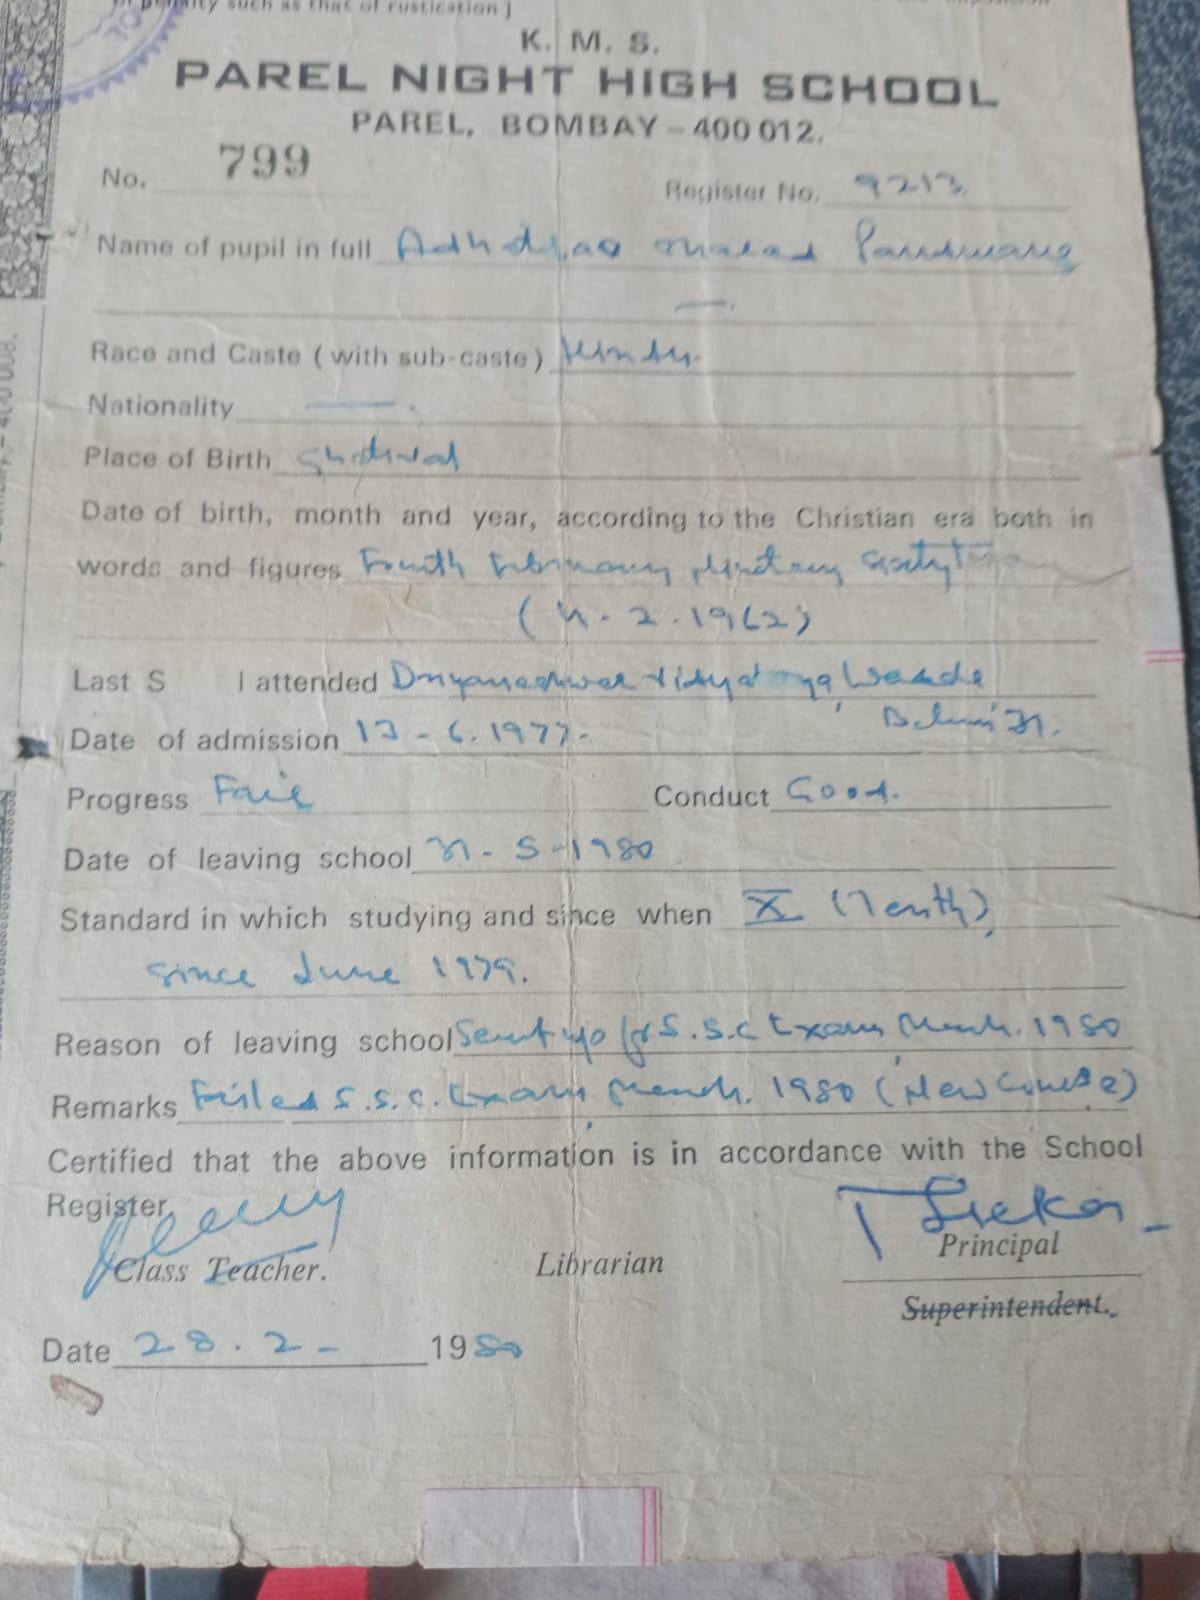 penalty such as that of rustication ]
K. M. S.
PAREL NIGHT HIGH SCHOOL
PAREL, BOMBAY – 400 012.
No. 799 Register No. 9213.
Name of pupil in full
Race and Caste ( with sub-caste ) Hindu.
Nationality — .
Place of Birth
Date of birth, month and year, according to the Christian era both in
words and figures Fourth February
Last S l attended Dnyaneshwar
Date of admission 13 - 6. 1977.
Progress Fair Conduct Good.
Date of leaving school - 5 - 1980
Standard in which studying and since when X (Tenth),
since June 1979.
Reason of leaving school Sent up for S.S.C Exam, March. 1980
Remarks Failed S.S.C. Exam, March. 1980 (New Course)
Certified that the above information is in accordance with the School
Register.
Class Teacher. Librarian Principal
Superintendent.
Date 28. 2 - 1980